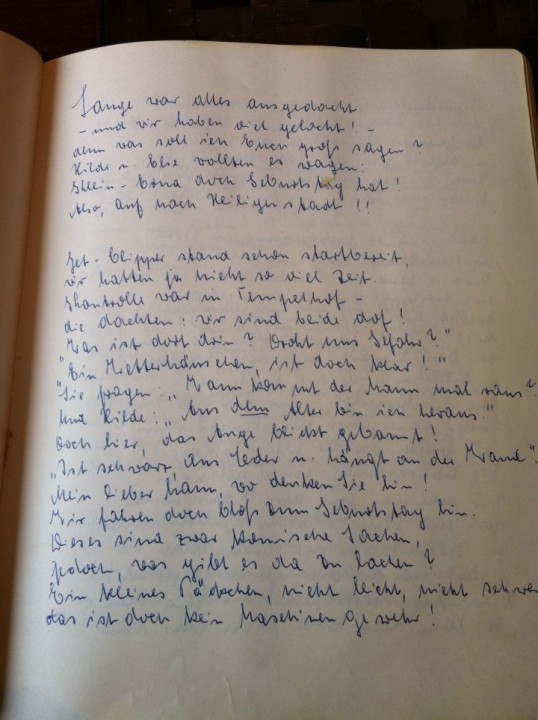 Lange war alles ausgedacht
- und wir haben viel gelacht! -
denn was soll ich Euch groß sagen?
Hilde u. Else wollten es wagen:
Klein-Erna doch Geburtstag hat!
Also, auf nach Heiligenstadt!!
Jet-Clipper stand schon startbereit,
wir hatten ja nicht so viel Zeit.
Kontrolle war in Tempelhof -
die dachten: wir sind beide dof!
"Was ist dort drin? Droht uns Gefahr?"
"Ein Wetterhäuschen, ist doch klar!"
Sie fragen: "Wann kommt der Mann mal raus?"
Und Hilde: "Aus dem Alter bin ich heraus."
Doch hier, das Auge bleibt gebannt!
"Ist schwarz, aus Leder u. hängt an der Wand".
Mein lieber Mann, wo denken Sie hin!
Wir fahren doch bloß zum Geburtstag hin.
Dieses sind zwar komische Sachen,
jedoch, was gibt es da zu lachen?
Ein kleines Päckchen, nicht leicht, nicht schwer
das ist doch kein Maschinengewehr!